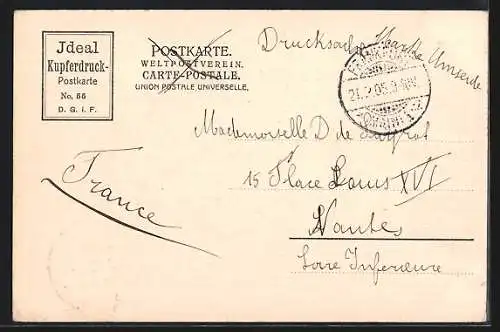 Jdeal
Kupferdruck-
Postkarte
No. 56
D. G. i. F.
POSTKARTE.
WELTPOSTVEREIN.
CARTE-POSTALE.
UNION POSTALE UNIVERSELLE.
Drucksache Marke Umseite
21. 05.
Mademoiselle D de
15 Place Louis XVI
Nantes
Loire Inferieure
France